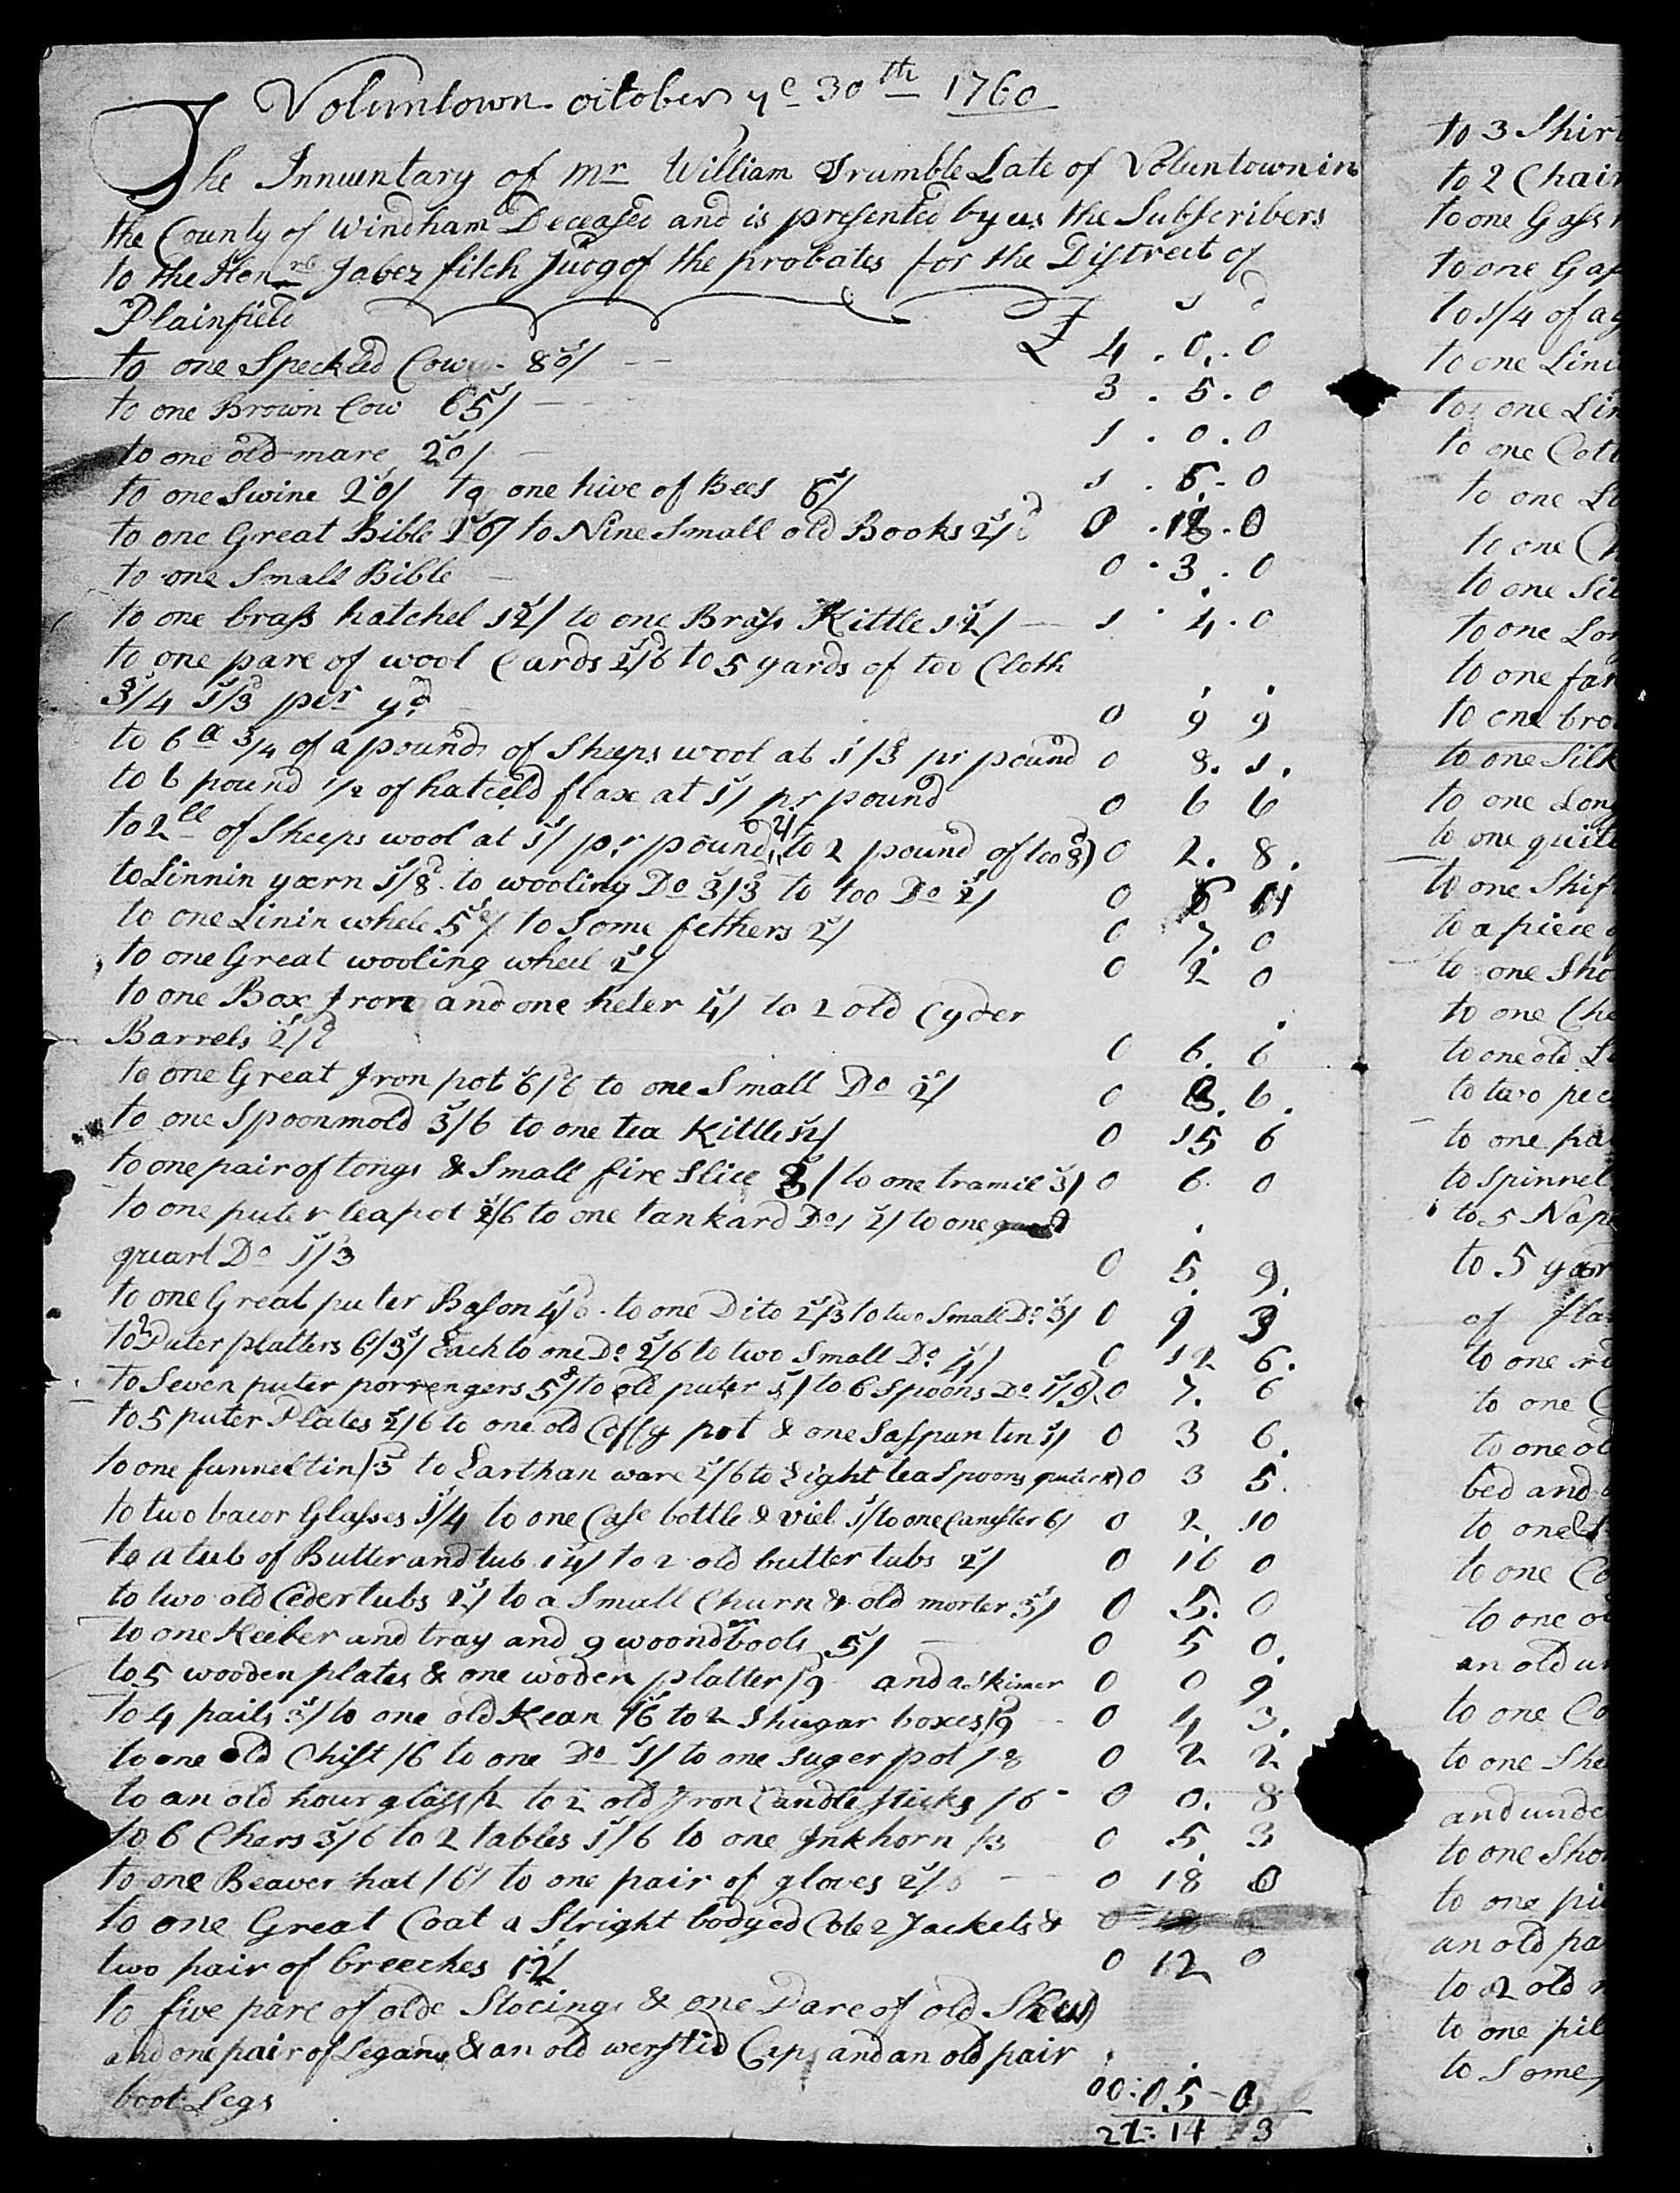 Voluntown october ye 30th 1760
The Innuentary of Mr William Trumble Late of Voluntown in
the County of Windham Deceased and is presented by us the Subscribers
to the Honrl Jabez fitch Judg of the probates for the Districet of
Plainfield £ s d
to one Speckled Cow 80/ 4 . 0 . 0
to one Brown Cow 65/ 3 . 5 . 0
to one old mare 20/ 1 . 0 . 0
to one Swine 20/ to one hive of Bees 6/ 1 . 6 . 0
to one Great Bible 16/ to Nine Small old Books 2/ 0 . 18 . 0
to one Small Bible 0 . 3 . 0
to one brass hatchel 12/ to one Brass Kittle 12/ 1 . 4 . 0
to one pare of wool Cards 2/6 to 5 yards of too Cloth
3/4 1/3 per yd 0 9 9
to 6 a 3/4 of a pound of Sheeps wool at 1/3 pr pound 0 8 . 1 .
to 6 pound 1/2 of hatceld flax at 1/ pr pound 0 6 6
to 2 ll of Sheeps wool at 1/ pr pound 2/ to 2 pound of too 8) 0 2 . 8 .
to Linnin yarn 1/8 to wooling Do 3/3 to too Do 2/ 0 6 11
to one Linin whele 5/ to Some fethers 2/ 0 7 . 0
to one Great wooling wheel 2/ 0 2 0
to one Box Iron and one heter 4/ to 2 old Cyder
Barrels 2/6 0 6 . 6
to one Great Iron pot 6/6 to one Small Do 2/ 0 8 . 6 .
to one Spoonmold 3/6 to one tea Kittle 12/ 0 15 6
to one pair of tongs & Small fire Slice 3/ to one tramil 3/ 0 6 0
to one puter teapot 2/6 to one tankard Do 2/ to one
quart Do 1/3 0 5 9 .
to one Great puter Bason 4/ to one Dito 2/3 to two Small Do 3/ 0 9 3
to 2 Puter platters 6/ 3/ Each to one Do 2/6 to two Small Do 4/ 0 12 6 .
to Seven puter porrengers 5/ to old puter 1/ to 6 Spoons Do 1/6) 0 7 . 6
to 5 puter Plates 2/6 to one old Coffy pot & one Saspan tin 1/ 0 3 6 .
to one funnel tin /3 to Earthan ware 2/6 to Eight tea Spoons puter 8) 0 3 5 .
to two bacor Glasses 1/4 to one Case bottle & viel 1/ to one Canester 6/ 0 2 . 10
to a tub of Butter and tub 14/ to 2 old butter tubs 2/ 0 16 0
to two old Ceder tubs 2/ to a Small Churn & old morter 3/ 0 5 . 0
to one Keeler and tray and 9 woonden bools 5/ 0 5 0 .
to 5 wooden plates & one woden platter /9 and a Skimer 0 0 9
to 4 pails 3/ to one old Kean /6 to 2 Shugar boxes /9 0 4 3 .
to one old Chist /6 to one Do 1/ to one Suger pot /8 0 2 2
to an old hour glass /2 to 2 old Iron Candle sticks /6 0 0 . 8
to 6 Chers 3/6 to 2 tables 1/6 to one Inkhorn /3 0 5 3
to one Beaver hat 16/ to one pair of gloves 2/ 0 18 0
to one Great Coat a Stright bodyed Cote 2 Jackets &
two pair of breeches 12/ 0 12 0
to five pare of olde Stocings & one Pare of old Shews
and one pair of Legans & an old werstid Cap and an old pair
boot Legs 00 : 05 - 0
22 : 14 3
to 3 Shir
to 2 Chair
to one Gass
to one Ga
to 1/4 of a
to one Lin
to one Lin
to one Cott
to one
to one Ch
to one Sil
to one Lo
to one fa
to one bro
to one Silk
to one Long
to one quilt
to one Shif
to a piece
to one Sho
to one Che
to one old
to two pee
to one pa
to Spinnel
to 5 Nap
to 5 yar
of fla
to one
to one
to one ol
bed and
to one
to one Co
to one o
an old
to one Co
to one She
and unde
to one Shor
to one pi
an old pa
to 2 old
to one pil
to Some